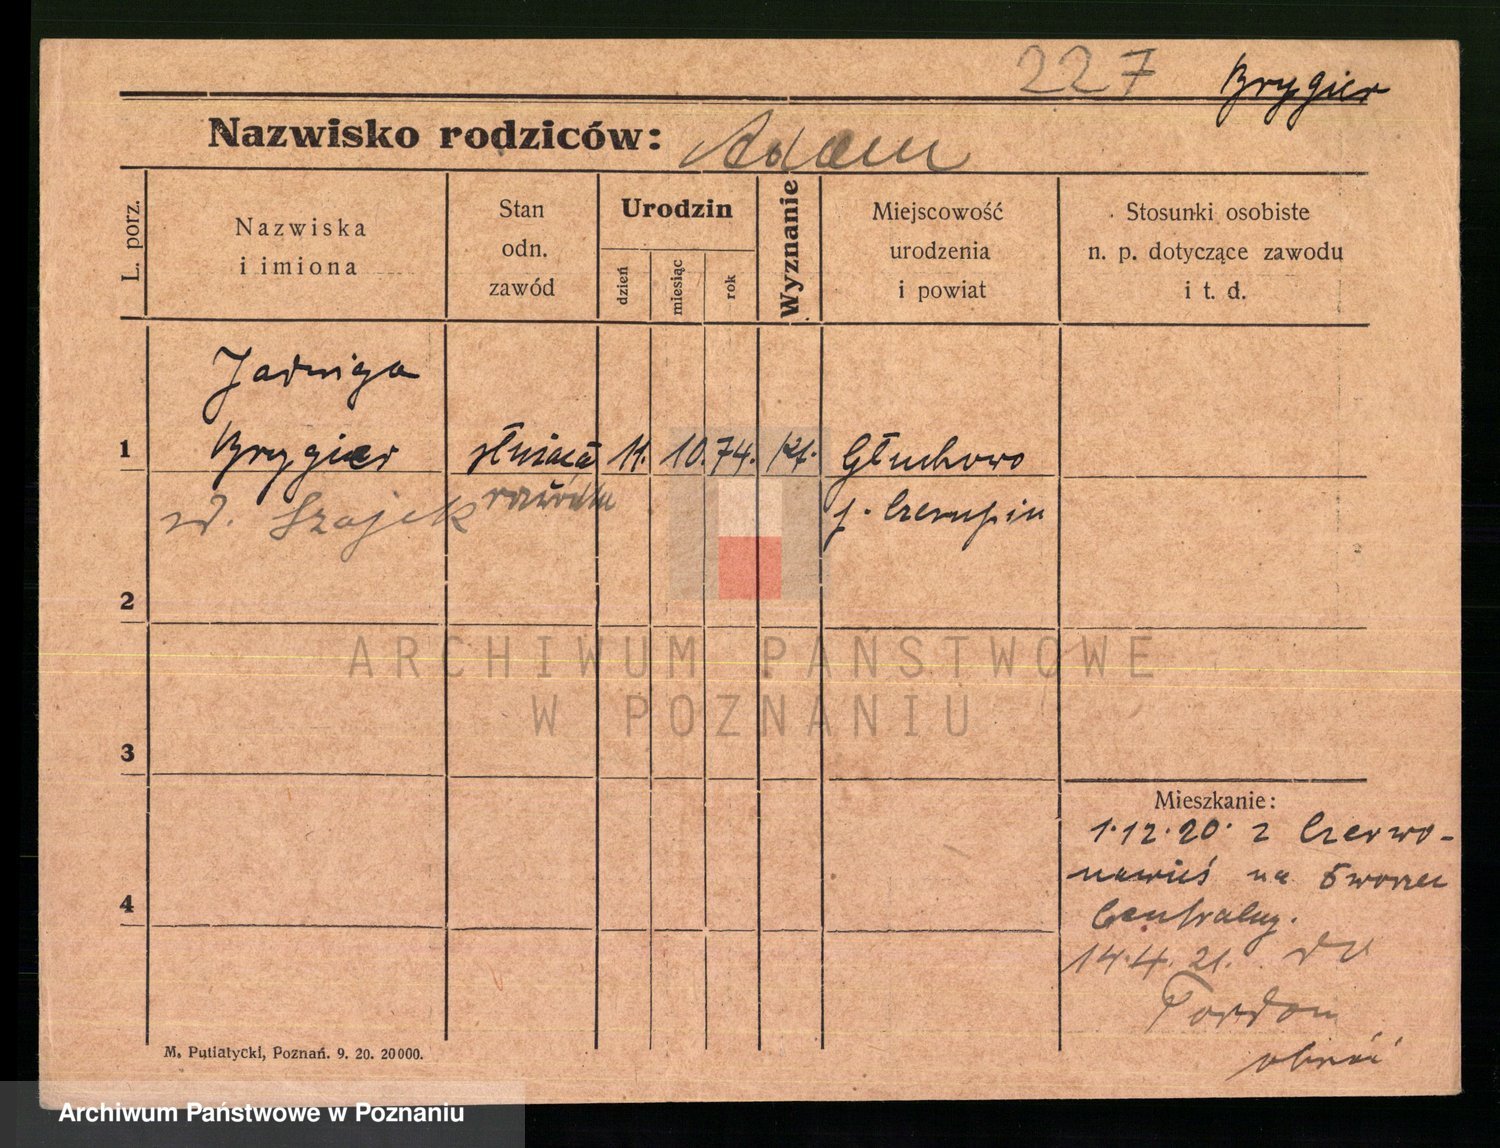 227 Brygier
Nazwisko rodziców: Adam
L. porz.
Nazwiska
i imiona
Stan
odn.
zawód
Urodzin
dzień
miesiąc
rok
Wyznanie
Miejscowość
urodzenia
i powiat
Stosunki osobiste
n. p. dotyczące zawodu
i t. d.
Jadwiga
1 Brygier służąca 11. 10. 74. kt. Głuchowo
zd. Szajek rozwódka p. Czempin
2
3
4
ARCHIWUM PAŃSTWOWE
W POZNANIU
Mieszkanie:
1.12.20. z Czerwo-
nawieś na Dworzec
Centralny.
14.4.21. do
Fordon
obróć
M. Putiatycki, Poznań. 9. 20. 20000.
Archiwum Państwowe w Poznaniu